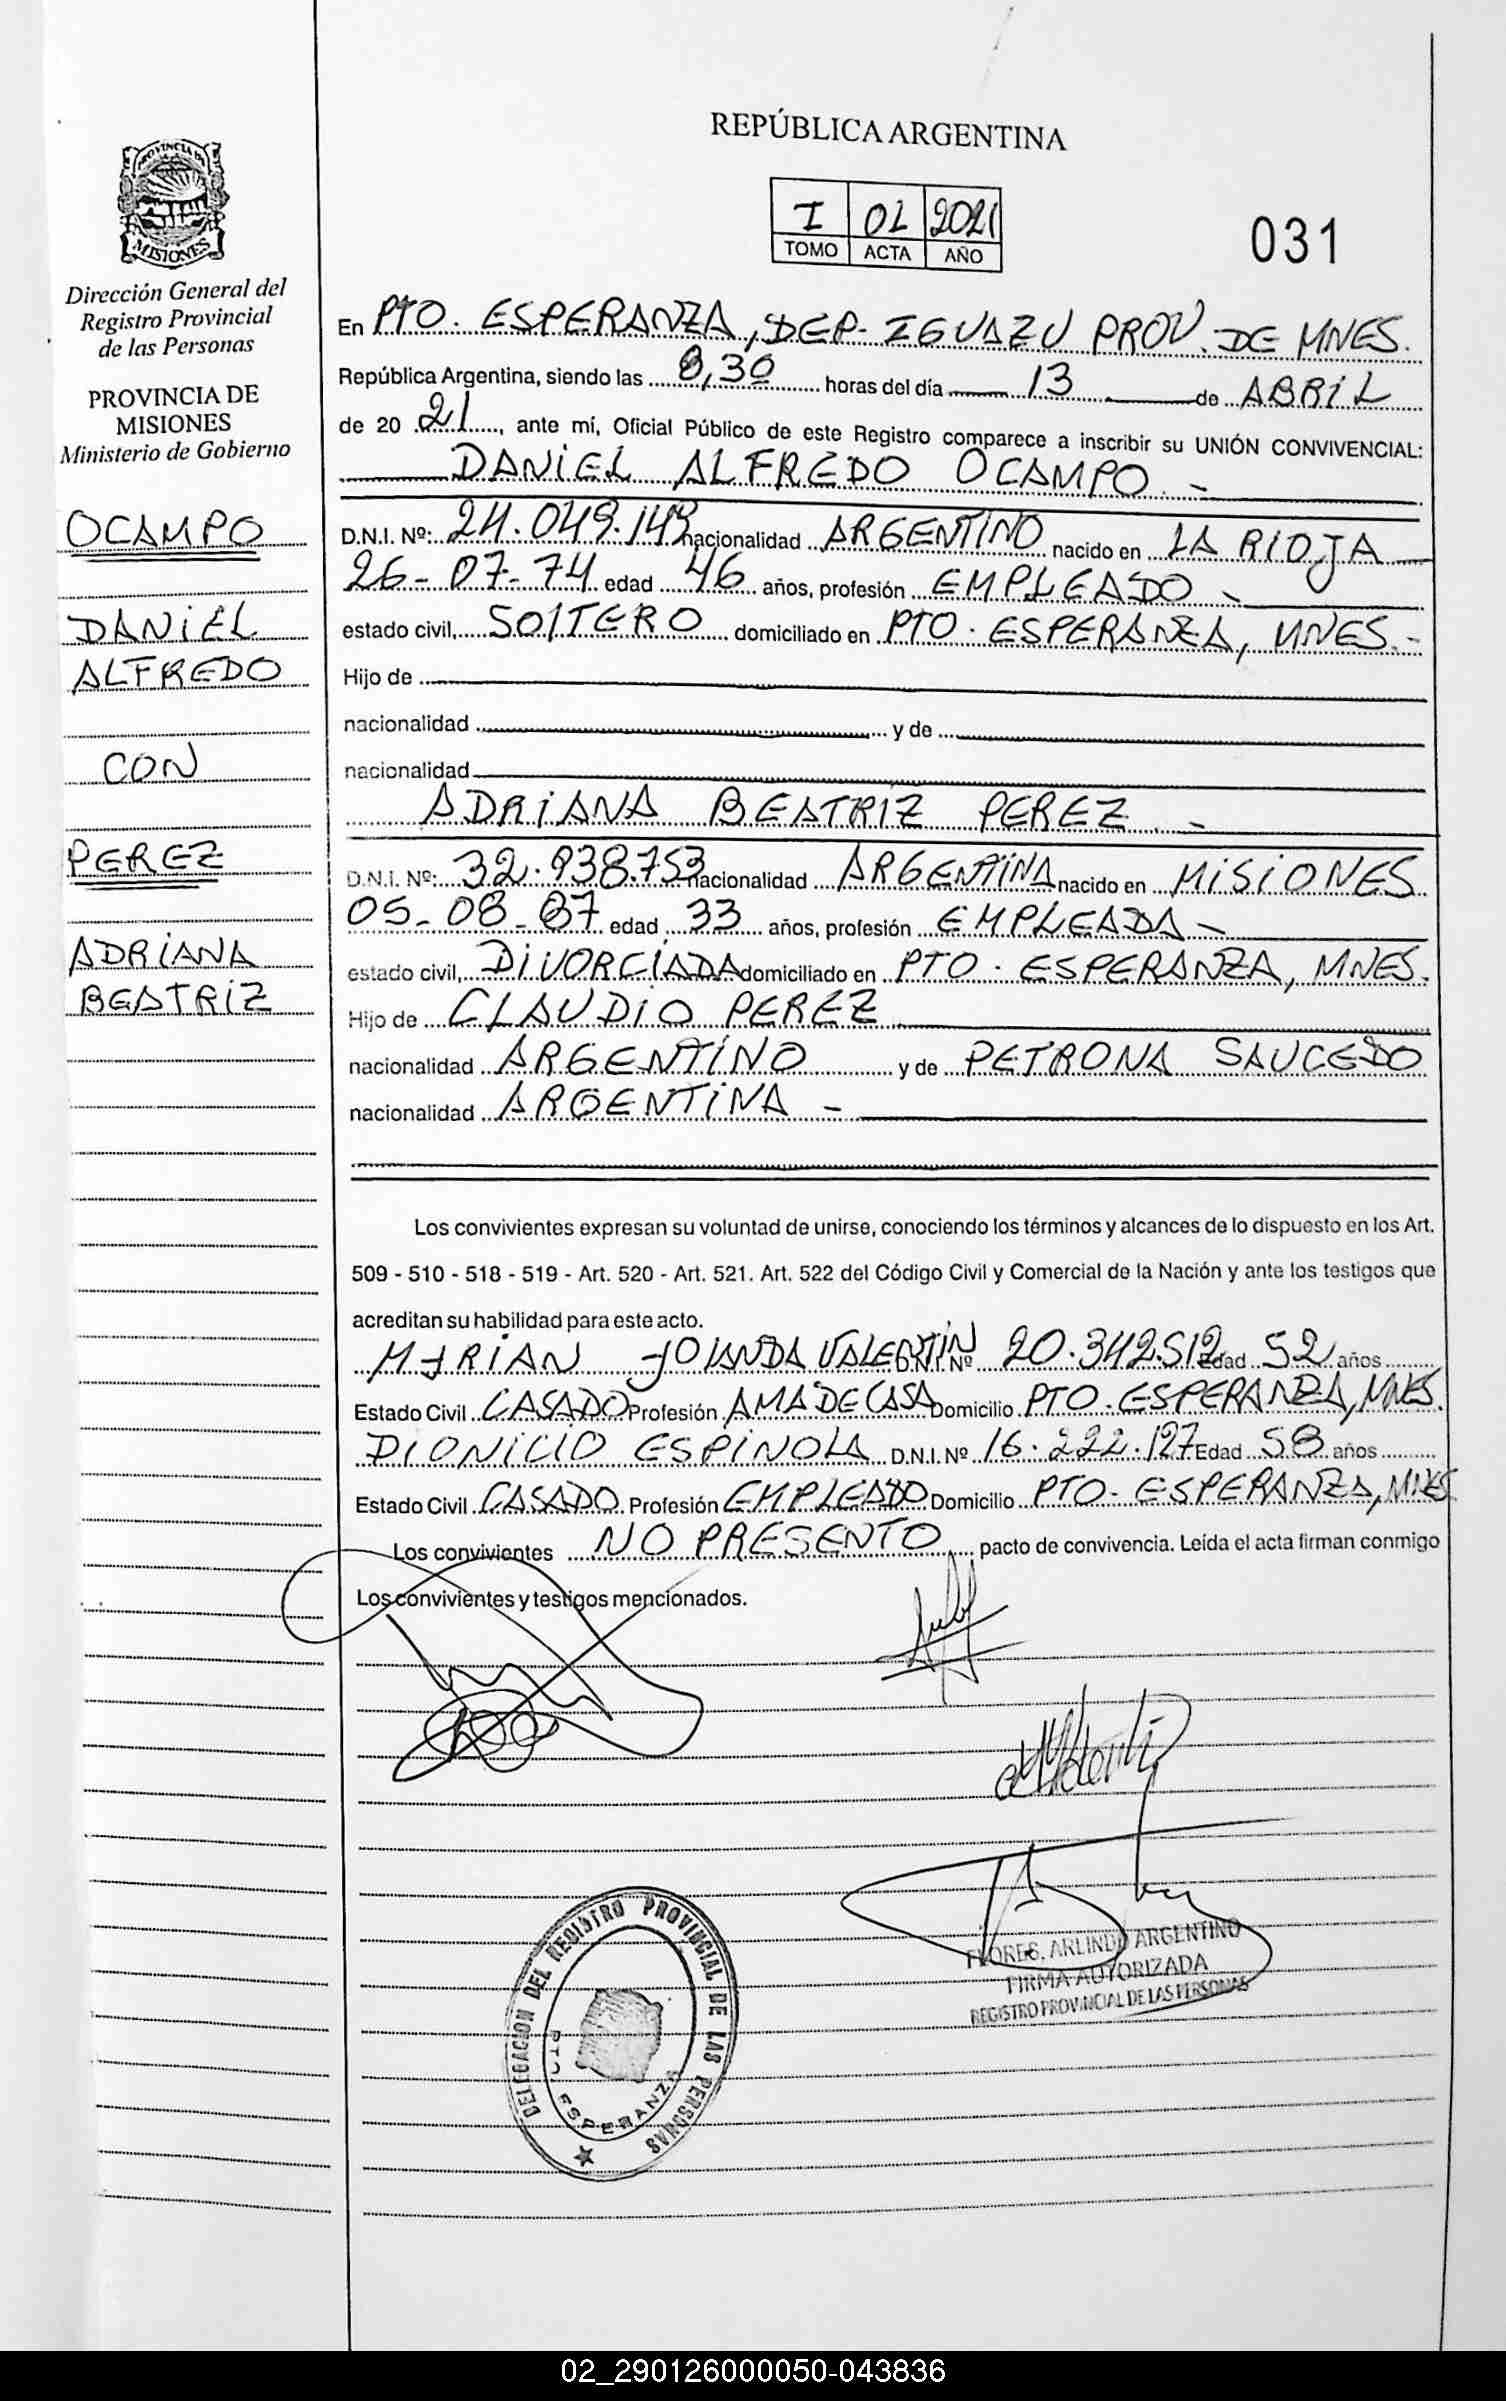 REPÚBLICA ARGENTINA
I 02 2021
TOMO ACTA AÑO
031
PROVINCIA DE
MISIONES
Dirección General del
Registro Provincial
de las Personas
PROVINCIA DE
MISIONES
Ministerio de Gobierno
OCAMPO
DANIEL
ALFREDO
CON
PEREZ
ADRIANA
BEATRIZ
En PTO. ESPERANZA, DEP- IGUAZU PROV. DE MNES.
República Argentina, siendo las 8,30 horas del día 13 de ABRIL
de 20 21, ante mí, Oficial Público de este Registro comparece a inscribir su UNIÓN CONVIVENCIAL:
DANIEL ALFREDO OCAMPO. -
D.N.I. Nº: nacionalidad ARGENTINO nacido en LA RIOJA
26-07-74 edad 46 años, profesión EMPLEADO -
estado civil, SOLTERO domiciliado en PTO. ESPERANZA, MNES.-
Hijo de
nacionalidad y de
nacionalidad
ADRIANA BEATRIZ PEREZ. -
D.N.I. Nº: 32.938.753 nacionalidad ARGENTINA nacido en MISIONES
05-08-87 edad 33 años, profesión EMPLEADA -
estado civil, DIVORCIADA domiciliado en PTO. ESPERANZA, MNES.
Hijo de CLAUDIO PEREZ
nacionalidad ARGENTINO y de PETRONA SAUCEDO
nacionalidad ARGENTINA -
Los convivientes expresan su voluntad de unirse, conociendo los términos y alcances de lo dispuesto en los Art.
509 - 510 - 518 - 519 - Art. 520 - Art. 521. Art. 522 del Código Civil y Comercial de la Nación y ante los testigos que
acreditan su habilidad para este acto.
MIRIAN YOLANDA VALENTIN D.N.I. Nº 20.342.512 Edad 52 años
Estado Civil CASADO Profesión AMA DE CASA Domicilio PTO. ESPERANZA, MNES.
DIONICIO ESPINOLA D.N.I. Nº 16.222.127 Edad 58 años
Estado Civil CASADO. Profesión EMPLEADO Domicilio PTO- ESPERANZA, MNES
Los convivientes NO PRESENTO pacto de convivencia. Leída el acta firman conmigo
Los convivientes y testigos mencionados.
FLORES, ARLINDO ARGENTINO
FIRMA AUTORIZADA
REGISTRO PROVINCIAL DE LAS PERSONAS
DELEGACION DEL REGISTRO PROVINCIAL DE LAS PERSONAS
PTO ESPERANZA
02_290126000050-043836